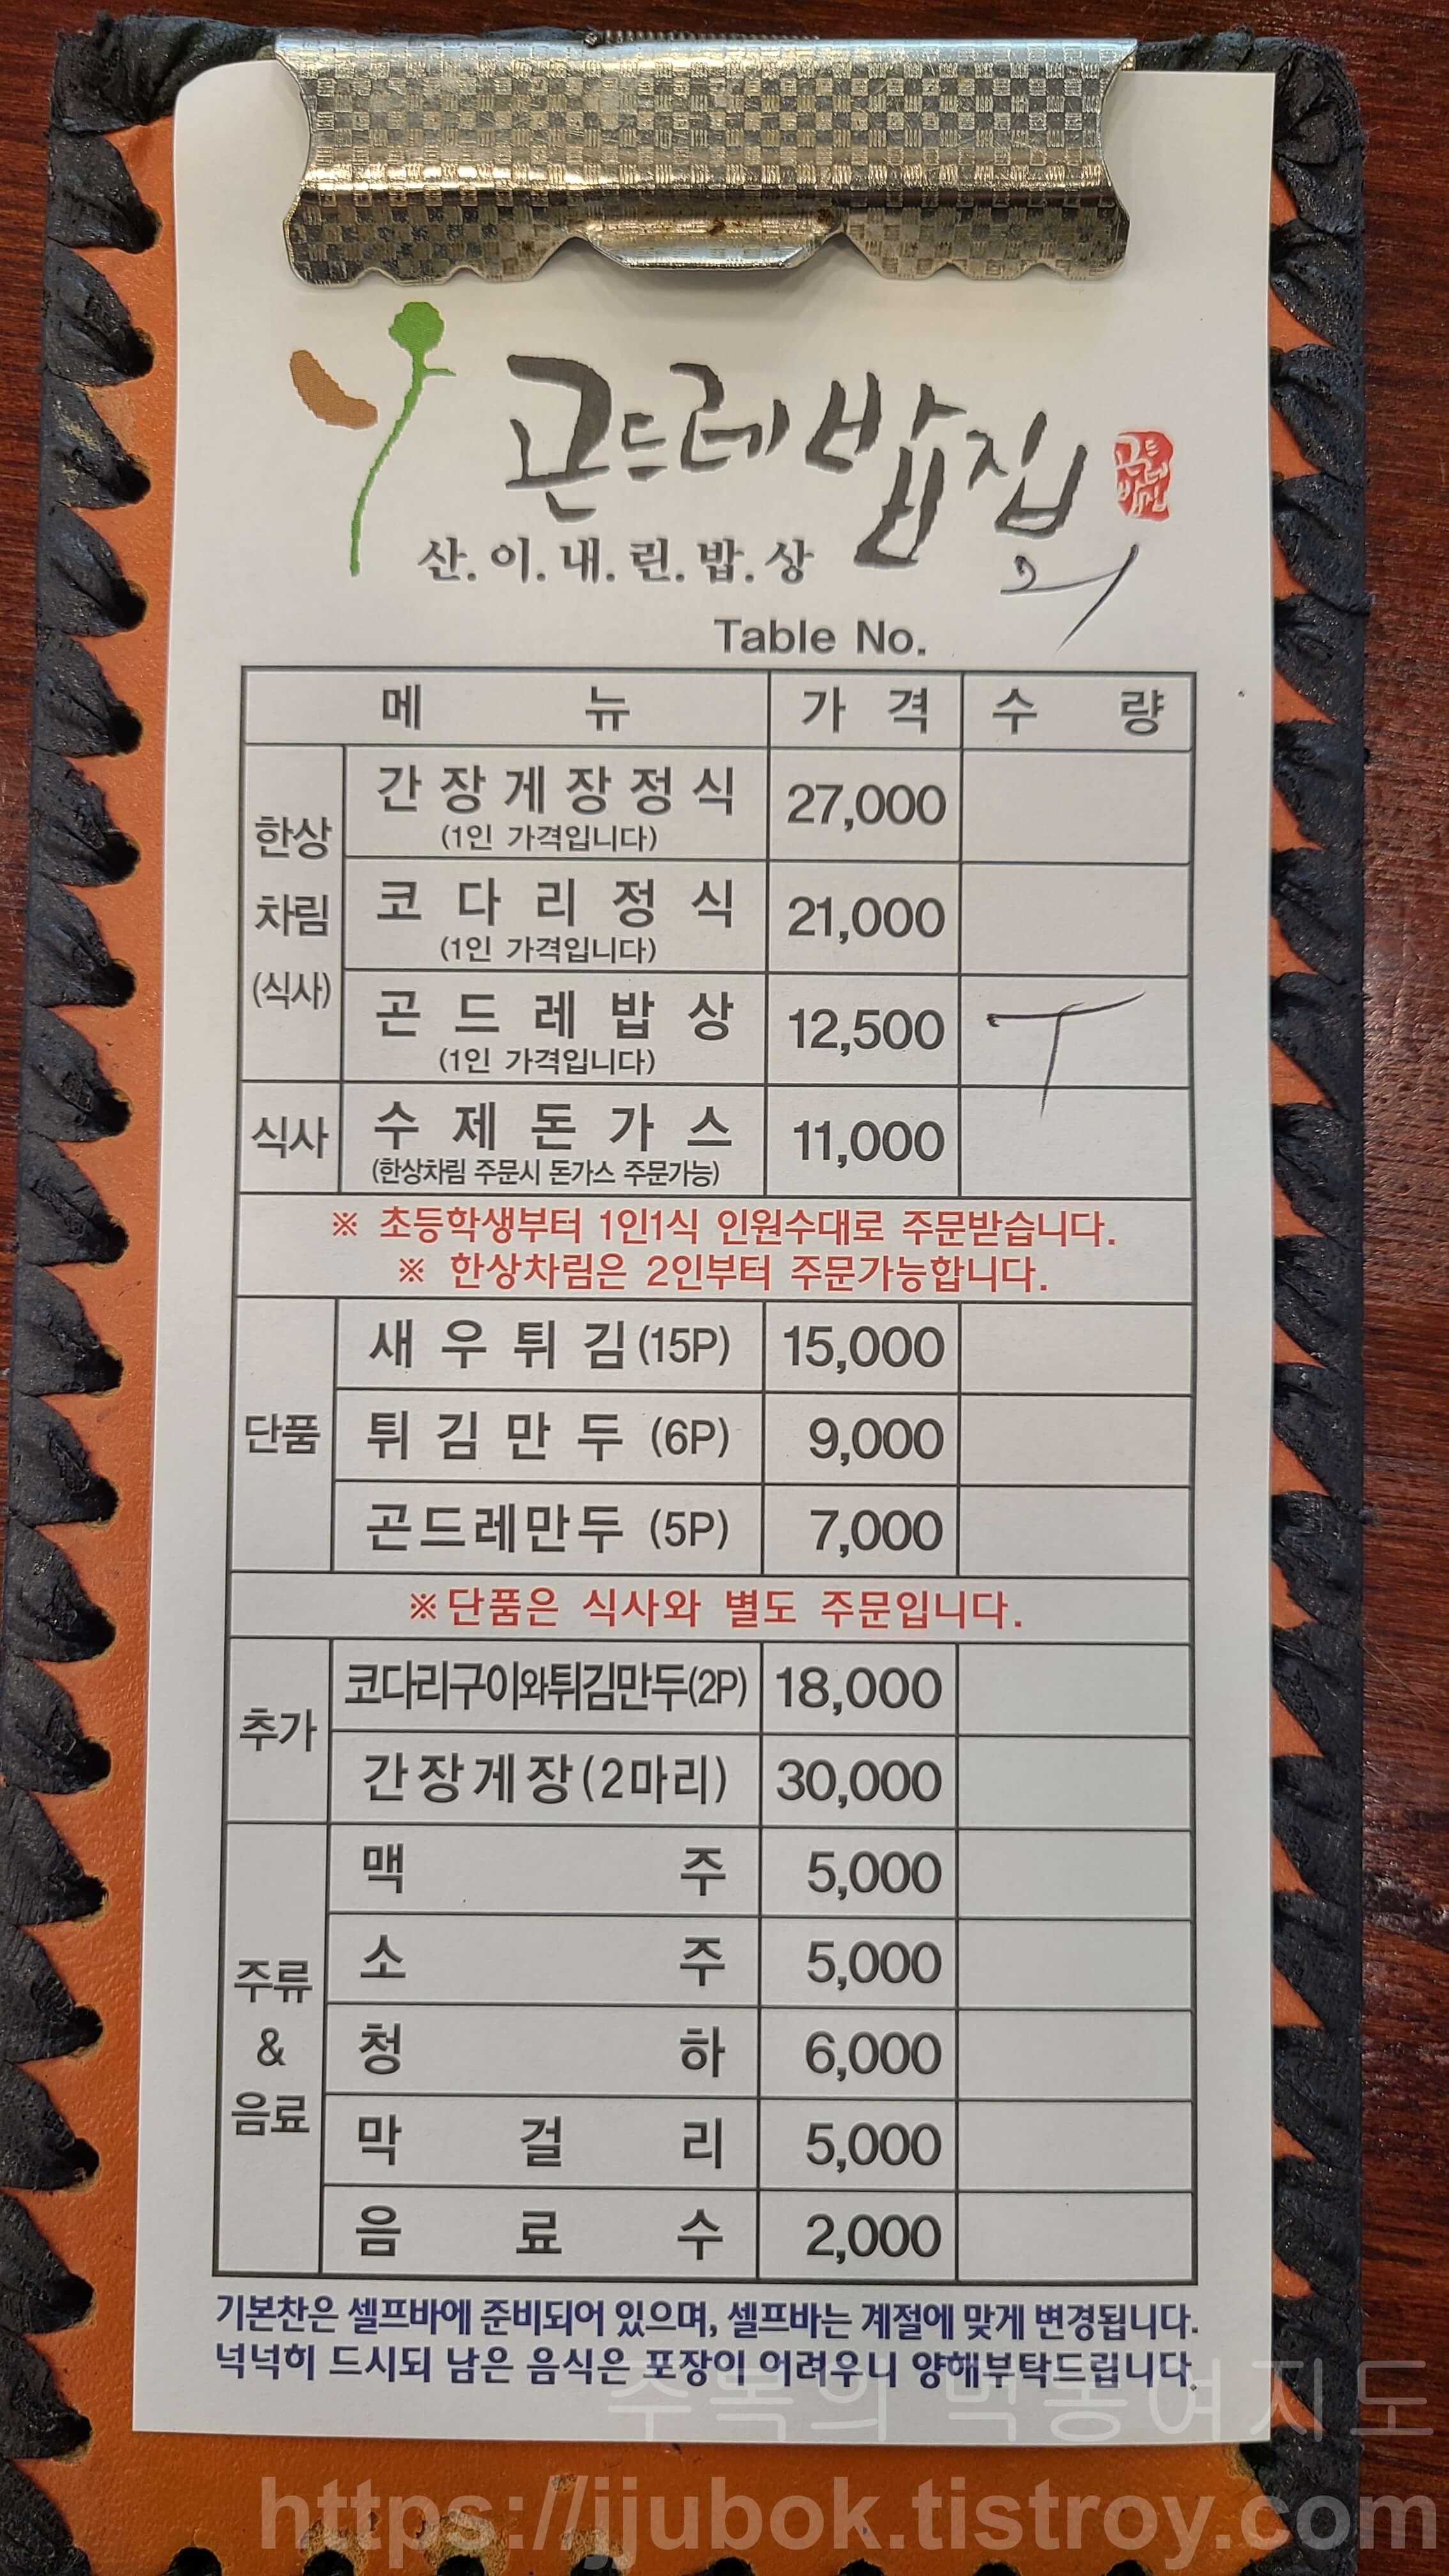 곤드레밥집
곤드레
밥집
산.이.내.린.밥.상
Table No. 21
메뉴 가격 수량
한상차림(식사)
간장게장정식 27,000
(1인 가격입니다)
코다리정식 21,000
(1인 가격입니다)
곤드레밥상 12,500 T
(1인 가격입니다)
식사 수제돈가스 11,000
(한상차림 주문시 돈가스 주문가능)
※ 초등학생부터 1인1식 인원수대로 주문받습니다.
※ 한상차림은 2인부터 주문가능합니다.
단품
새우튀김(15P) 15,000
튀김만두 (6P) 9,000
곤드레만두 (5P) 7,000
※단품은 식사와 별도 주문입니다.
추가
코다리구이와튀김만두(2P) 18,000
간장게장(2마리) 30,000
주류 & 음료
맥주 5,000
소주 5,000
청하 6,000
막걸리 5,000
음료수 2,000
기본찬은 셀프바에 준비되어 있으며, 셀프바는 계절에 맞게 변경됩니다.
넉넉히 드시되 남은 음식은 포장이 어려우니 양해부탁드립니다.
주복의 먹동여지도
https://jjubok.tistroy.com